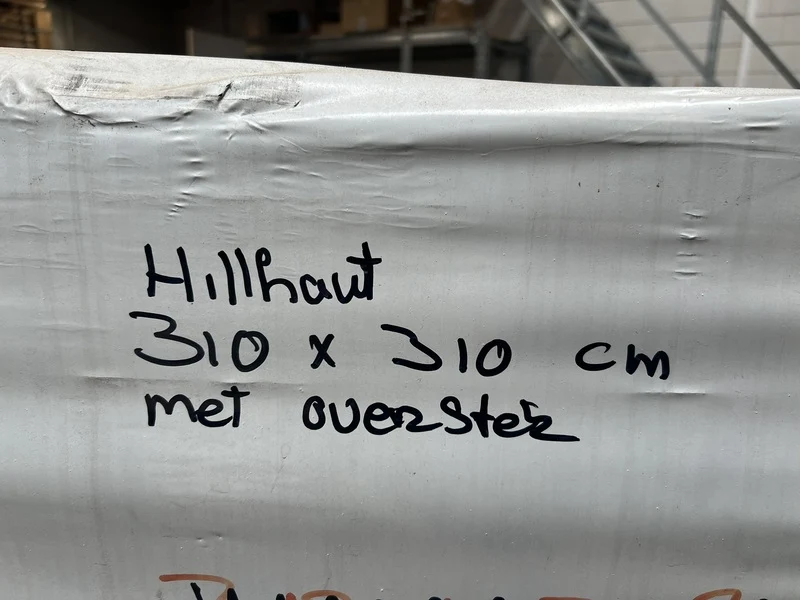 Hillhaut
310 x 310 cm
met overstek